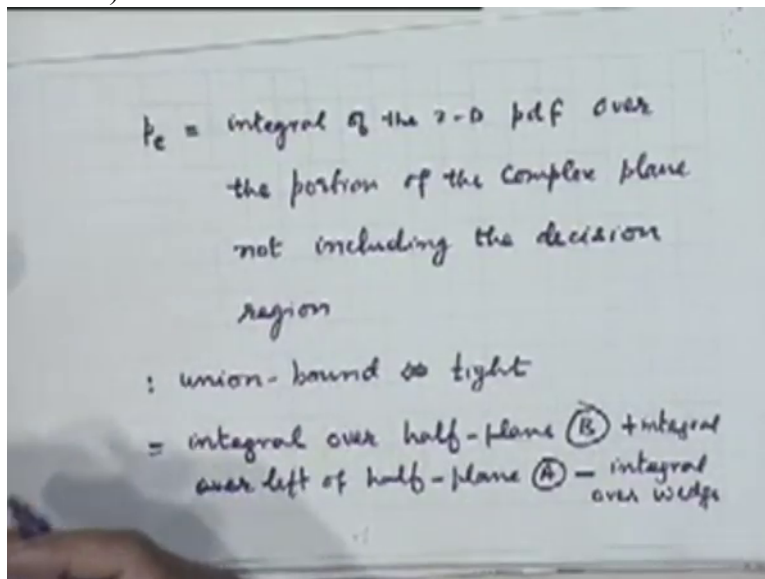 Pe = integral of the 2-D pdf over
the portion of the complex plane
not including the decision
region
: union-bound is tight
= integral over half-plane (B) + integral
over left of half-plane (A) - integral
over wedge